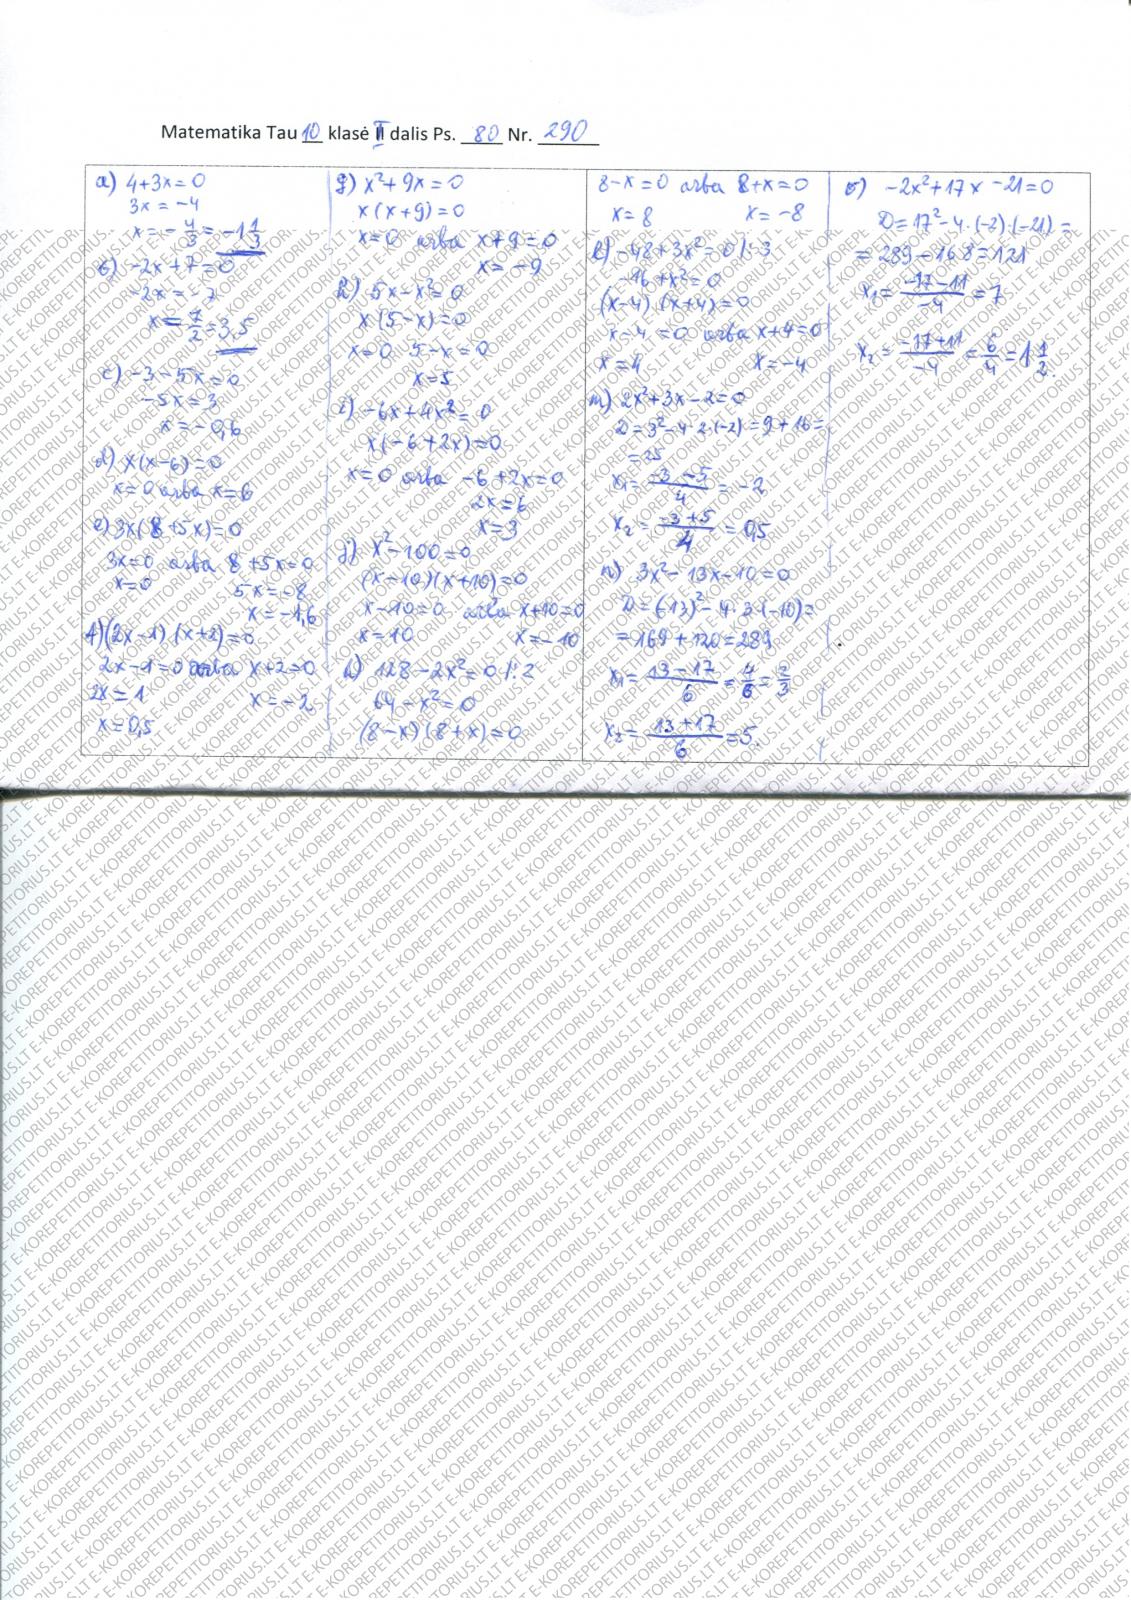 Matematika Tau 10 klasė II dalis Ps. 80 Nr. 290
a) 4+3x=0
3x=-4
x=-4/3=-1 1/3
b) -2x+7=0
-2x=-7
x=7/2=3,5
c) -3-5x=0
-5x=3
x=-0,6
d) x(x-6)=0
x=0 arba x=6
e) 3x(8+5x)=0
3x=0 arba 8+5x=0
x=0 5x=-8
x=-1,6
f) (2x-1)(x+2)=0
2x-1=0 arba x+2=0
2x=1 x=-2
x=0,5
g) x²+9x=0
x(x+9)=0
x=0 arba x+9=0
x=-9
h) 5x-x²=0
x(5-x)=0
x=0 5-x=0
x=5
i) -6x+4x²=0
x(-6+2x)=0
x=0 arba -6+2x=0
2x=6
x=3
j) x²-100=0
(x-10)(x+10)=0
x-10=0 arba x+10=0
x=10 x=-10
k) 128-2x²=0 /:2
64-x²=0
(8-x)(8+x)=0
8-x=0 arba 8+x=0
x=8 x=-8
l) -48+3x²=0 /:3
-16+x²=0
(x-4)(x+4)=0
x-4=0 arba x+4=0
x=4 x=-4
m) 2x²+3x-2=0
D=3²-4·2·(-2)=9+16=
=25
x₁=(-3-5)/4=-2
x₂=(-3+5)/4=0,5
n) 3x²-13x-10=0
D=(-13)²-4·3·(-10)=
=169+120=289
x₁=(13-17)/6=4/6=2/3
x₂=(13+17)/6=5.
o) -2x²+17x-21=0
D=17²-4·(-2)·(-21)=
=289-168=121
x₁=(-17-11)/-4=7
x₂=(-17+11)/-4=6/4=1 1/2.
E-KOREPETITORIUS.LT